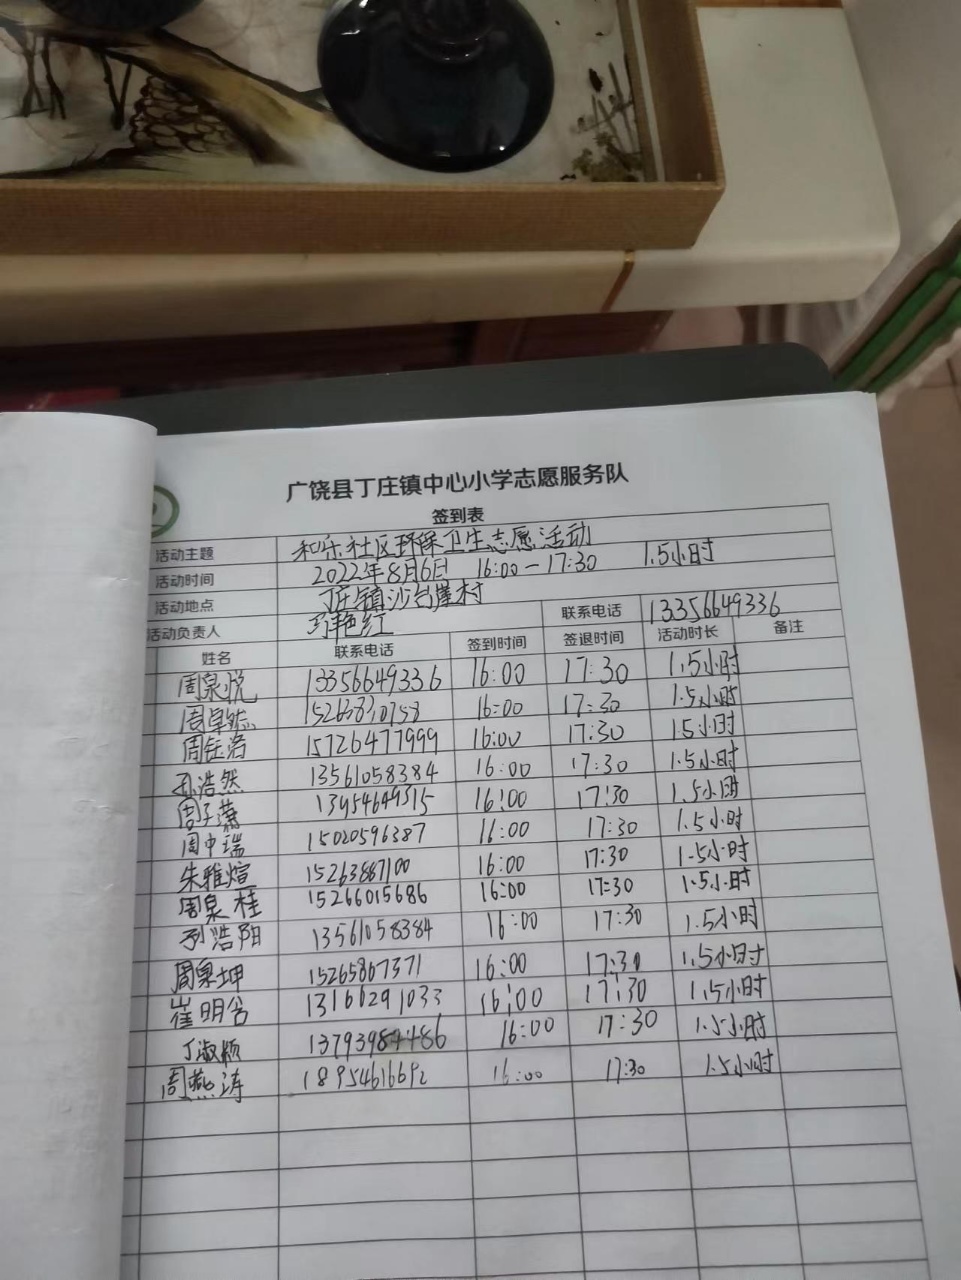 广饶县丁庄镇中心小学志愿服务队
签到表
活动主题 和乐社区环保卫生志愿活动
活动时间 2022年8月6日 16:00-17:30 1.5小时
活动地点 丁庄镇沙台崖村
活动负责人 马艳红 联系电话 13356649336
姓名 联系电话 签到时间 签退时间 活动时长 备注
周泉悦 13356649336 16:00 17:30 1.5小时
周卓然 16:00 17:30 1.5小时
周钰浩 15726477999 16:00 17:30 1.5小时
孙浩然 13561058384 16:00 17:30 1.5小时
周子萧 13954649315 16:00 17:30 1.5小时
周中瑞 15020596387 16:00 17:30 1.5小时
朱雅煊 15263887100 16:00 17:30 1.5小时
周泉桂 15266015686 16:00 17:30 1.5小时
孙浩阳 13561058384 16:00 17:30 1.5小时
周泉坤 15265867371 16:00 17:30 1.5小时
崔明谷 13160291033 16:00 17:30 1.5小时
丁淑颖 16:00 17:30 1.5小时
周燕涛 18954616692 16:00 17:30 1.5小时